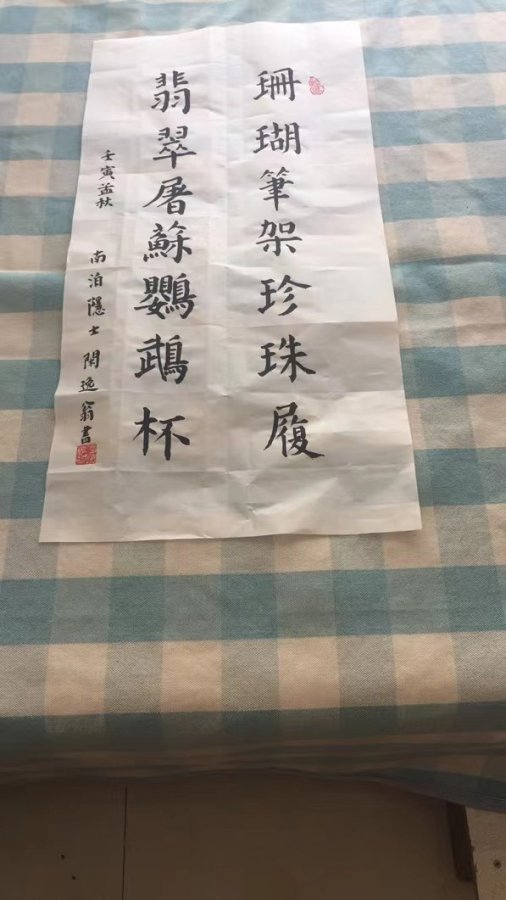 珊瑚筆架珍珠履
翡翠屠蘇鸚鵡杯
壬寅孟秋
南泊隱士閑逸翁書